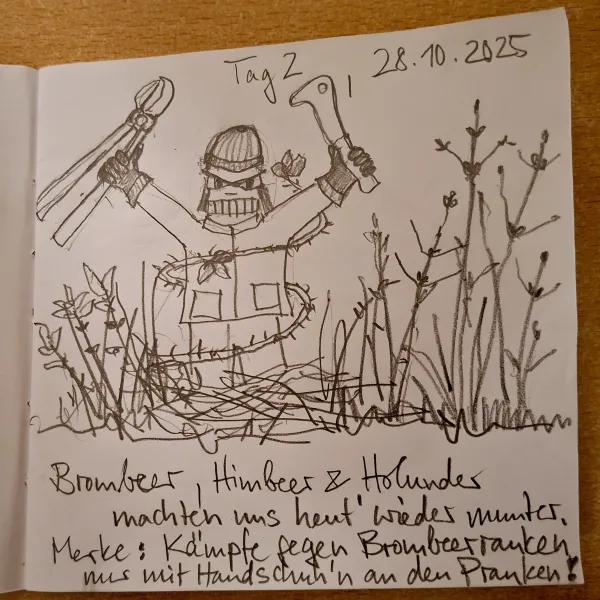 Tag 2 28.10.2025
Brombeer, Himbeer & Holunder
machten uns heut' wieder munter.
Merke: Kämpfe gegen Brombeerranken
nur mit Handschuh'n an den Pranken!